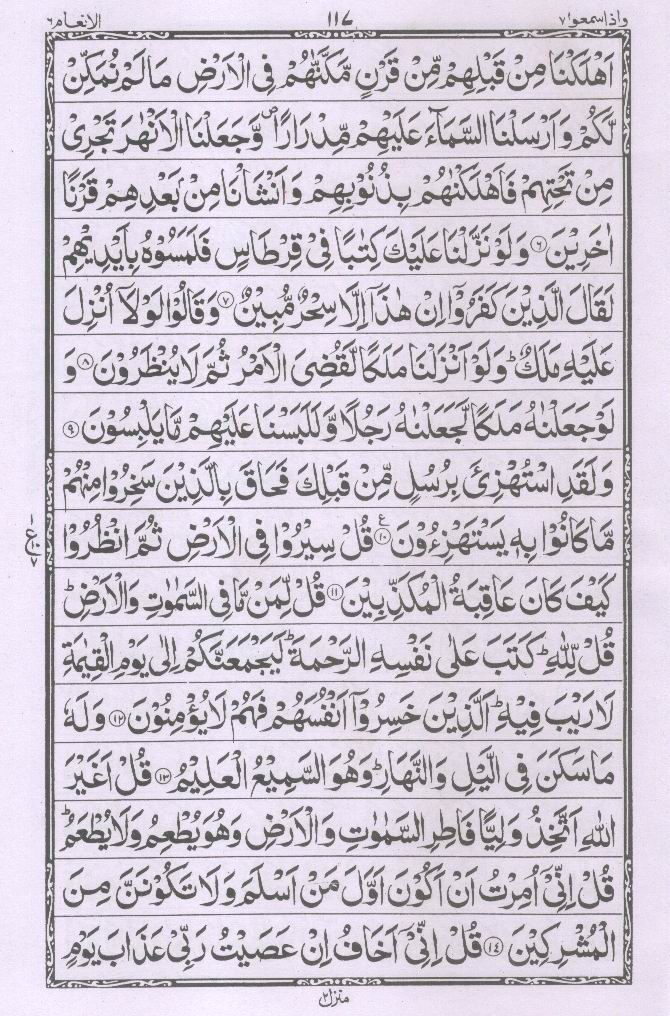 واذاسمعوا٧ ١١٧ الانعام٦
اَهْلَكْنَا مِنْ قَبْلِهِمْ مِّنْ قَرْنٍ مَّكَّنّٰهُمْ فِی الْاَرْضِ مَا لَمْ نُمَكِّنْ
لَّكُمْ وَاَرْسَلْنَا السَّمَآءَ عَلَیْهِمْ مِّدْرَارًا ۪ وَّجَعَلْنَا الْاَنْهٰرَ تَجْرِیْ
مِنْ تَحْتِهِمْ فَاَهْلَكْنٰهُمْ بِذُنُوْبِهِمْ وَاَنْشَاْنَا مِنْ بَعْدِهِمْ قَرْنًا
اٰخَرِیْنَ ۶ وَلَوْ نَزَّلْنَا عَلَیْكَ كِتٰبًا فِیْ قِرْطَاسٍ فَلَمَسُوْهُ بِاَیْدِیْهِمْ
لَقَالَ الَّذِیْنَ كَفَرُوْۤا اِنْ هٰذَاۤ اِلَّا سِحْرٌ مُّبِیْنٌ ۷ وَقَالُوْا لَوْلَاۤ اُنْزِلَ
عَلَیْهِ مَلَكٌ ؕ وَلَوْ اَنْزَلْنَا مَلَكًا لَّقُضِیَ الْاَمْرُ ثُمَّ لَا یُنْظَرُوْنَ ۸ وَ
لَوْ جَعَلْنٰهُ مَلَكًا لَّجَعَلْنٰهُ رَجُلًا وَّلَلَبَسْنَا عَلَیْهِمْ مَّا یَلْبِسُوْنَ ۹
وَلَقَدِ اسْتُهْزِئَ بِرُسُلٍ مِّنْ قَبْلِكَ فَحَاقَ بِالَّذِیْنَ سَخِرُوْا مِنْهُمْ
مَّا كَانُوْا بِهٖ یَسْتَهْزِءُوْنَ ۱۰ ع قُلْ سِیْرُوْا فِی الْاَرْضِ ثُمَّ انْظُرُوْا
كَیْفَ كَانَ عَاقِبَةُ الْمُكَذِّبِیْنَ ۱۱ قُلْ لِّمَنْ مَّا فِی السَّمٰوٰتِ وَالْاَرْضِ ؕ
قُلْ لِّلّٰهِ ؕ كَتَبَ عَلٰی نَفْسِهِ الرَّحْمَةَ ؕ لَیَجْمَعَنَّكُمْ اِلٰی یَوْمِ الْقِیٰمَةِ
لَا رَیْبَ فِیْهِ ؕ اَلَّذِیْنَ خَسِرُوْۤا اَنْفُسَهُمْ فَهُمْ لَا یُؤْمِنُوْنَ ۱۲ وَلَهٗ
مَا سَكَنَ فِی الَّیْلِ وَالنَّهَارِ ؕ وَهُوَ السَّمِیْعُ الْعَلِیْمُ ۱۳ قُلْ اَغَیْرَ
اللّٰهِ اَتَّخِذُ وَلِیًّا فَاطِرِ السَّمٰوٰتِ وَالْاَرْضِ وَهُوَ یُطْعِمُ وَلَا یُطْعَمُ ؕ
قُلْ اِنِّیْۤ اُمِرْتُ اَنْ اَكُوْنَ اَوَّلَ مَنْ اَسْلَمَ وَلَا تَكُوْنَنَّ مِنَ
الْمُشْرِكِیْنَ ۱۴ قُلْ اِنِّیْۤ اَخَافُ اِنْ عَصَیْتُ رَبِّیْ عَذَابَ یَوْمٍ
منزل۲